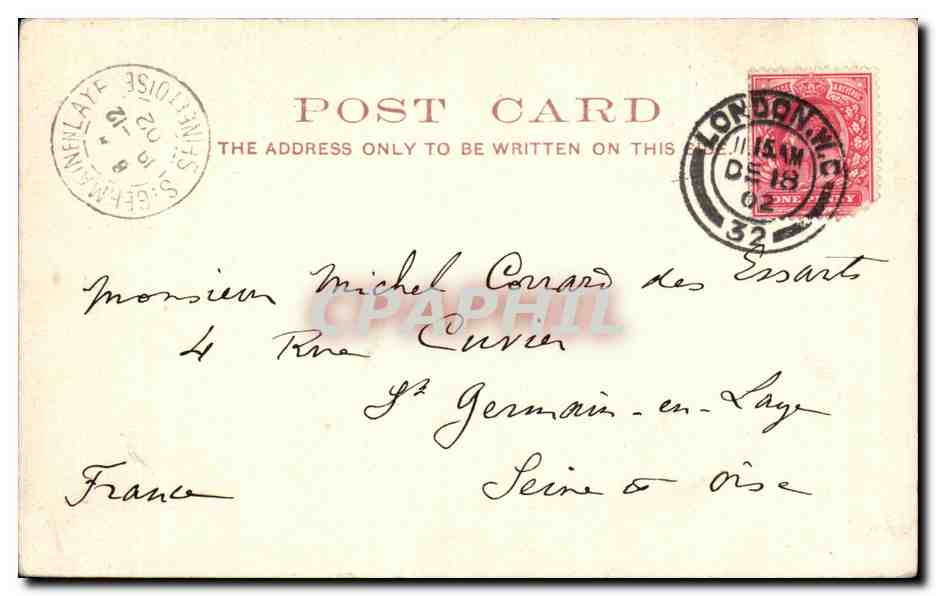 POST CARD
THE ADDRESS ONLY TO BE WRITTEN ON THIS
LONDON.W.C
11.15.AM
DE 18
02
32
ONE PENNY
St GERMAIN EN LAYE
SEINE ET OISE
-12
02
CPAPHIL
Monsieur Michel Corrard des Essarts
4 Rue Cuvier
St Germain-en-Laye
Seine & Oise
France